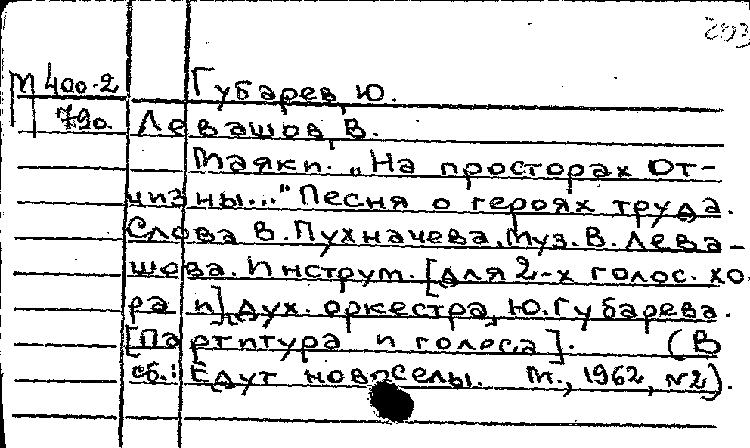 203
М 400-2 Губарев, Ю.
790. Левашов, В.
Маяки. „На просторах От-
чизны..." Песня о героях труда.
Слова В. Пухначева. Муз. В. Лева-
шова. Инструм. [для 2-х голос. хо-
ра и] дух. оркестра, Ю. Губарева.
[Партитура и голоса]. (В
сб.: Едут новоселы. М., 1962, №2).